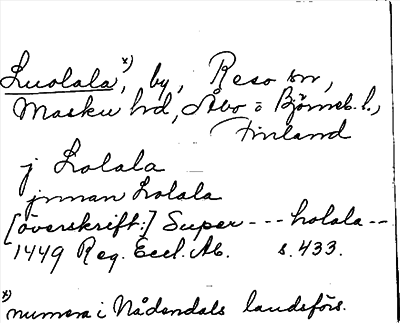 Luolala x), by, Reso sn,
Masku hd, Åbo o Björneb. l.,
Finland
j Lolala
jnnan Lolala
[överskrift:] Super --- lolala --
1449 Reg. Eccl. Ab. s. 433.
x) numera i Nådendals landsförs.